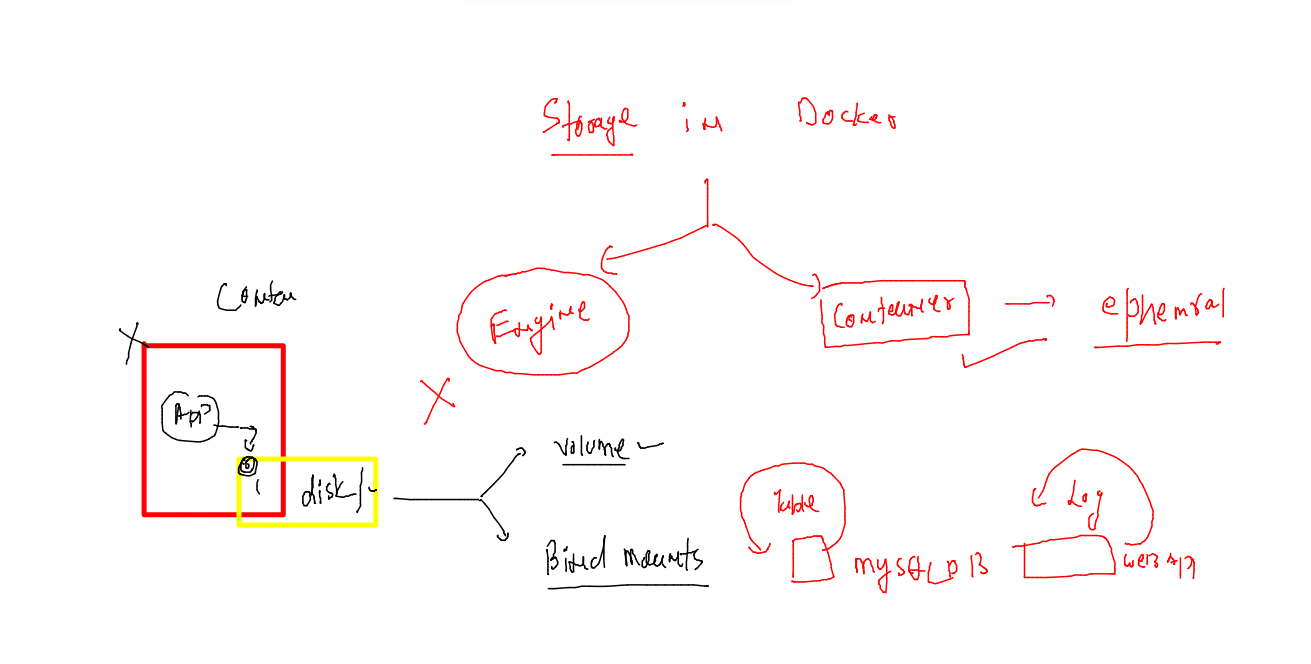 Storage in Docker
Engine
Container
ephemral
Conten
App
disk
volume
Bind mounts
Table
mysql DB
Log
WEB App